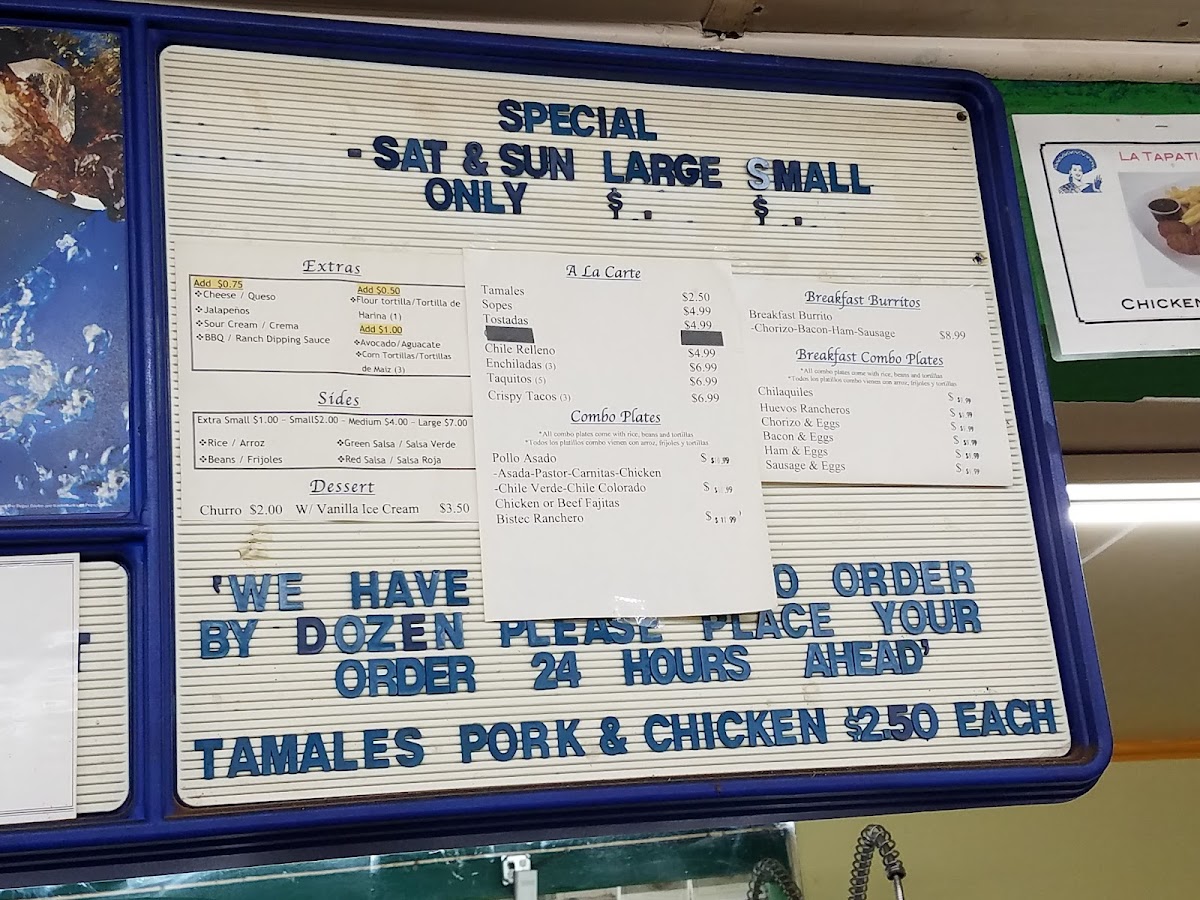 SPECIAL
- SAT & SUN LARGE SMALL
ONLY $ . $ .
Extras
Add $0.75
❖Cheese / Queso
❖Jalapenos
❖Sour Cream / Crema
❖BBQ / Ranch Dipping Sauce
Add $0.50
❖Flour tortilla/Tortilla de
Harina (1)
Add $1.00
❖Avocado/Aguacate
❖Corn Tortillas/Tortillas
de Maiz (3)
Sides
Extra Small $1.00 - Small$2.00 - Medium $4.00 - Large $7.00
❖Rice / Arroz
❖Beans / Frijoles
❖Green Salsa / Salsa Verde
❖Red Salsa / Salsa Roja
Dessert
Churro $2.00 W/ Vanilla Ice Cream $3.50
A La Carte
Tamales $2.50
Sopes $4.99
Tostadas $4.99
Chile Relleno $4.99
Enchiladas (3) $6.99
Taquitos (5) $6.99
Crispy Tacos (3) $6.99
Combo Plates
*All combo plates come with rice, beans and tortillas
*Todos los platillos combo vienen con arroz, frijoles y tortillas
Pollo Asado $
-Asada-Pastor-Carnitas-Chicken
-Chile Verde-Chile Colorado $
Chicken or Beef Fajitas
Bistec Ranchero $11.99
Breakfast Burritos
Breakfast Burrito
-Chorizo-Bacon-Ham-Sausage $8.99
Breakfast Combo Plates
*All combo plates come with rice, beans and tortillas
*Todos los platillos combo vienen con arroz, frijoles y tortillas
Chilaquiles $
Huevos Rancheros $
Chorizo & Eggs $
Bacon & Eggs $
Ham & Eggs $
Sausage & Eggs $
'WE HAVE O ORDER
BY DOZEN PLEASE PLACE YOUR
ORDER 24 HOURS AHEAD'
TAMALES PORK & CHICKEN $2.50 EACH
LA TAPATI
CHICKEN